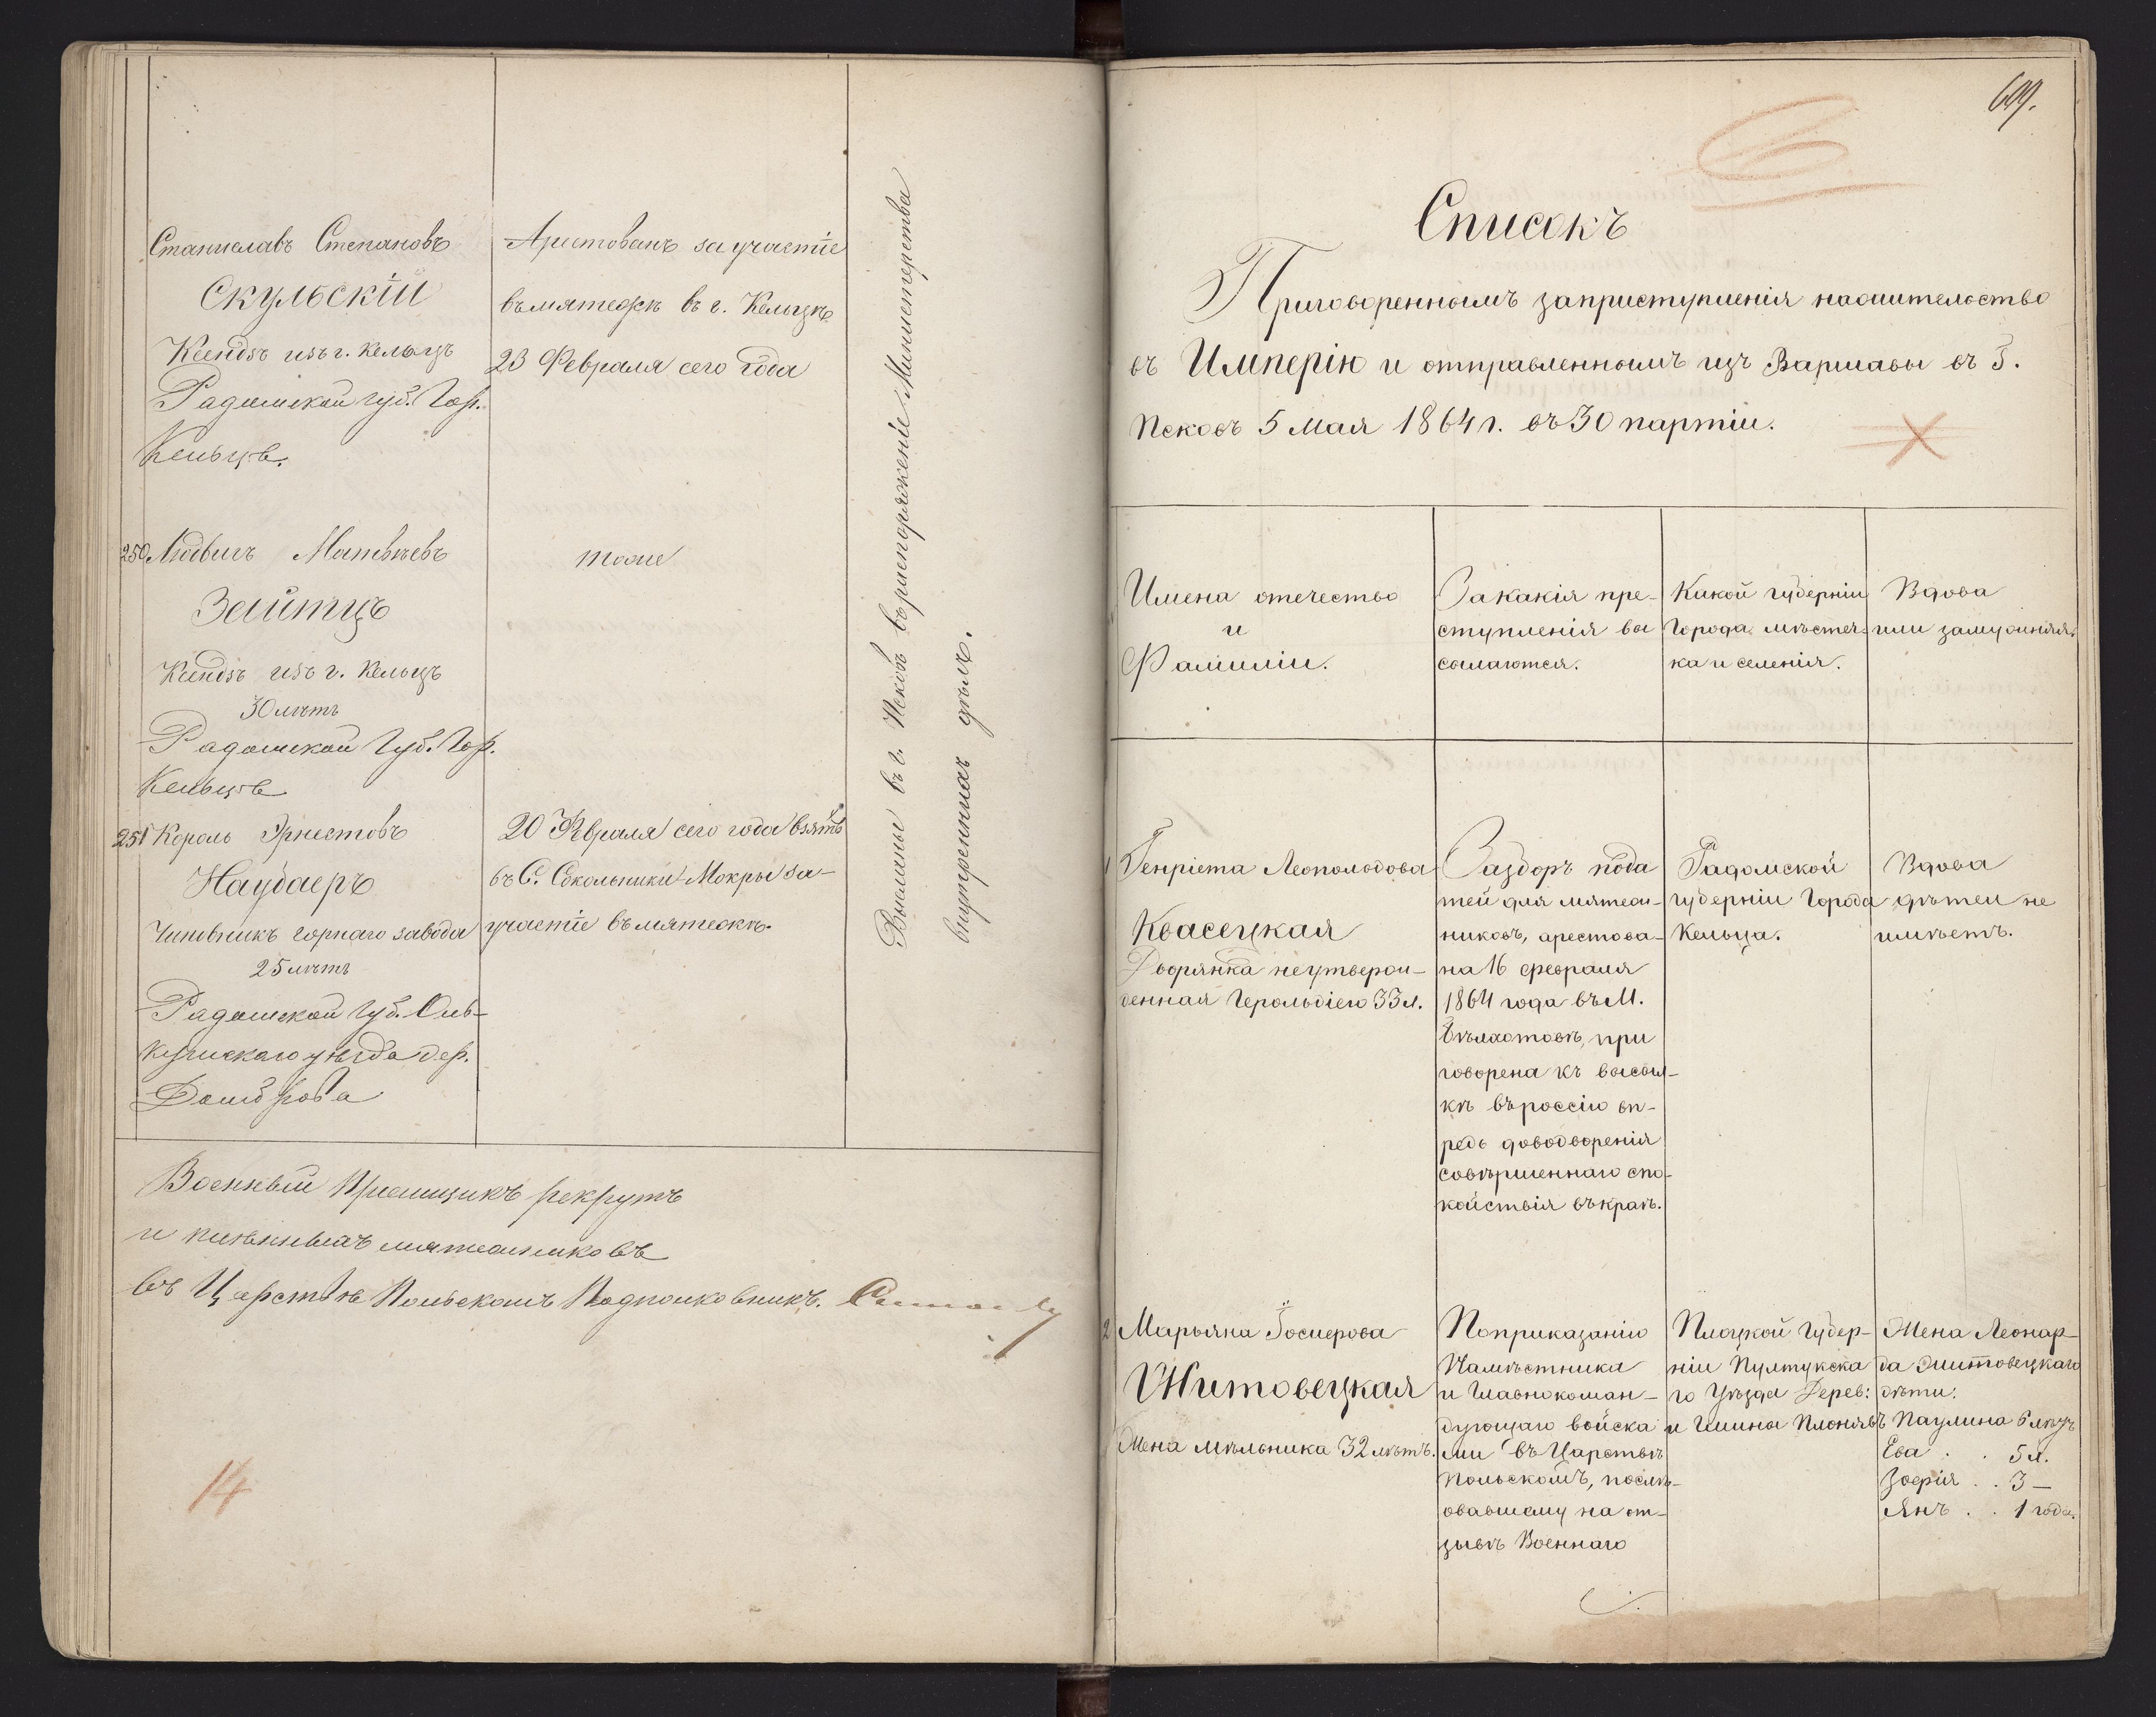 Станиславъ Степановъ
Скульскій
Ксендзъ изъ г. Кельцъ
Радомской губ. Гор.
Кельцъ.
Арестованъ за участіе
въ мятежѣ въ г. Кельцѣ
23 Февраля сего года
250 Людвигъ Матвѣевъ
Зайтцъ
Ксендзъ изъ г. Кельцъ
30 лѣтъ
Радомской Губ. Гор.
Кельцъ
тоже
251 Король Эрнестовъ
Наубаеръ
Чиновникъ горнаго завода
25 лѣтъ
Радомской Губ. Оль-
кушскаго уѣзда дер.
Домброва
20 Февраля сего года взятъ
въ С. Сокольники-Мокры за
участіе въ мятежѣ.
Высланы въ г. Псковъ въ распоряженіе Министерства
внутреннихъ дѣлъ.
Военный Пріемщикъ рекрутъ
и плѣнныхъ мятежниковъ
въ Царствѣ Польскомъ Подполковникъ.
14
699.
Списокъ
Приговореннымъ запреступленія нажительство
въ Имперію и отправленнымъ изъ Варшавы въ Г.
Псковъ 5 Мая 1864 г. въ 30 партіи.
Имена отечество
и
Фамиліи.
Закакія пре-
ступленія вы
сылаются.
Какой губерніи
Города мѣстеч-
ка и селенія.
Вдова
или замужняя.
1 Генріета Леопольдова
Квасецкая
Дворянка неутверж-
денная Герольдіею 33 л.
Засборъ пода
тей для мятеж-
никовъ, арестова-
на 16 февраля
1864 года въ М.
приговорена къ высыл-
кѣ въ россію вп-
редь доводворенія
совершеннаго спо-
койствія въ краѣ.
Радомской
губерніи Города
Кельца.
Вдова
дѣтей не
имѣетъ.
2 Марьяна Госперова
Житовецкая
Жена мѣльника 32 лѣтъ.
Поприказанію
Намѣстника
и Главнокоман-
дующаго войска
ми въ Царствѣ
Польскомъ, послѣ-
довавшему на от-
зывѣ Военнаго
Плоцкой Губер-
ніи Пултукска
го Уѣзда Дерев:
и Гмины
Жена Леонар-
да Житовецкаго
дѣти:
Паулина 6 лѣтъ
Ева . . 5 л.
Зофія . . 3 —
Янъ . . 1 года.